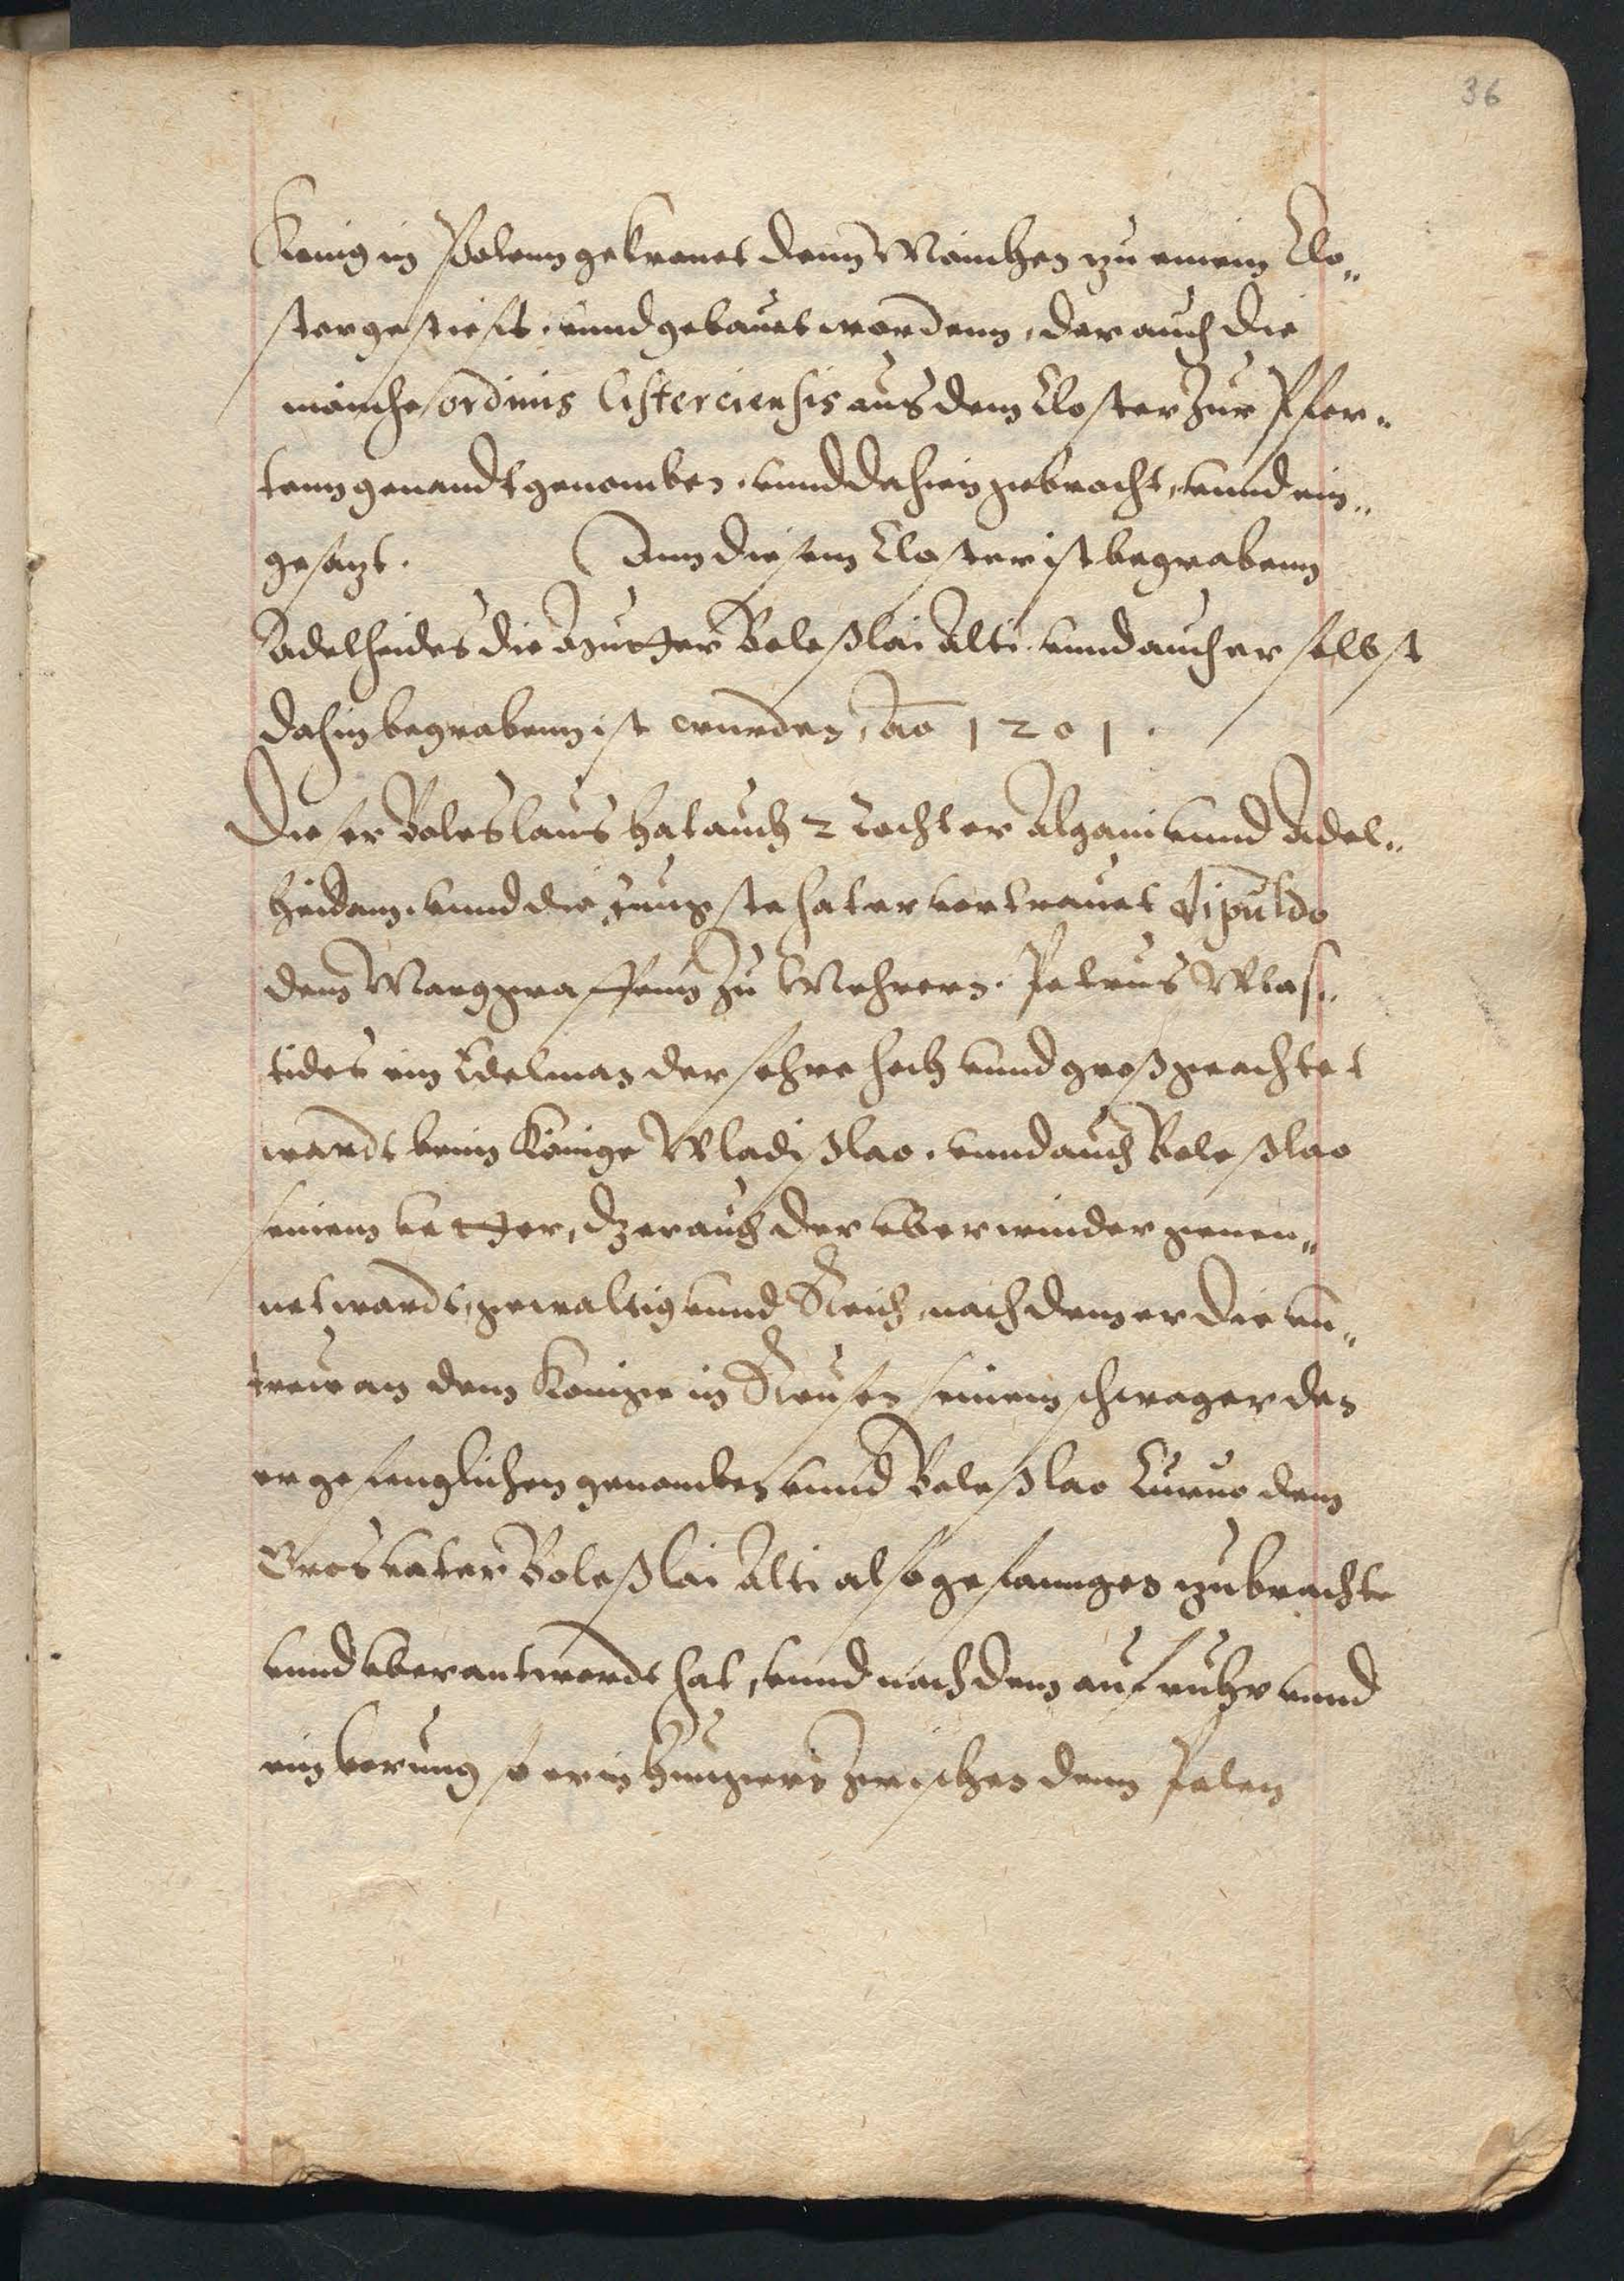 36
Konig in Polenn gekronet denn Mönichen zu einem Clo„
ster gestiefft, vnnd gebauet wordenn, der auch die
mönche ordinis Cisterciensis aus dem Closter zur Pfor„
tenn genandt genomben, vnnd dahien gebracht, vnnd ein„
gesazt. Inn diesem Closter ist begrabenn
Adelheides die Mutter Boleßlai Alti, vnnd auch er selbst
dahin begrabenn ist wurden, ao 1201.
Dieser Boleslaus hat auch 2 Tochter Algam vnnd Adel„
heidam, vnnd die jungste hat er vertrauet Dipuldo
dem Marggraffenn zu Mehrern. Petrus Wlas„
tides ein Edelman der sehre hoch vnnd groß geachtet
wardt beim Könige Wladißlao, vnnd auch Boleßlao
seinem vetter, der auch der vberwinder genen„
net wardt, gewaltig vnnd Reich, nach dem er die vn„
trew an dem Konige in Reusen seinem schwager den
er gefenglichen genomben vnnd Boleßlao Curuo dem
Gros vater Boleßlai Alti also gefanngen zubrachte
vnnd vberantwordt hat, vnnd nach dem aufruhr vnnd
so er in Hungern zwischen denn Polen